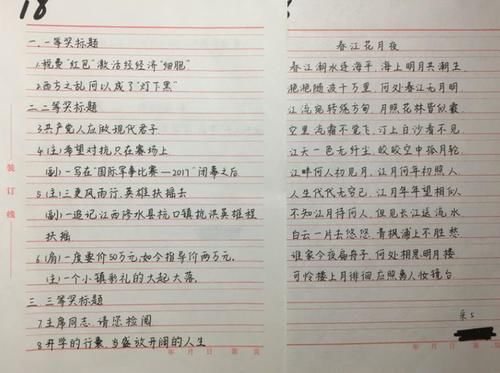 18
一.一等奖标题
1.税费"红包"激活经经济"细胞"
2.西方之乱何以成了"灯下黑"
二.二等奖标题
3.共产党人应做现代君子
4.(主)希望对抗只在赛场上
(副)一写在"国际军事比赛—2017"闭幕之后
5.(主)三更风雨行,英雄扶摇去
(副)一追记江西修水县杭口镇抗洪英雄程
扶摇
6.(肩)一度要价50万元,如今指导价两万元,
(主)一个小镇彩礼的大起大落。
三.三等奖标题
7.主席同志,请您检阅
8.开学的行囊,当盛放开阔的人生
装订线
年 月 日 第 页
春江花月夜
春江潮水连海平,海上明月共潮生
滟滟随波千万里,何处春江无月明
江流宛转绕芳甸,月照花林皆似霰
空里流霜不觉飞,汀上白沙看不见
江天一色无纤尘,皎皎空中孤月轮
江畔何人初见月,江月何年初照人
人生代代无穷已,江月年年望相似
不知江月待何人,但见长江送流水
白云一片去悠悠,青枫浦上不胜愁
谁家今夜扁舟子,何处相思明月楼
可怜楼上月徘徊,应照离人妆镜台
年 月 日 第 页